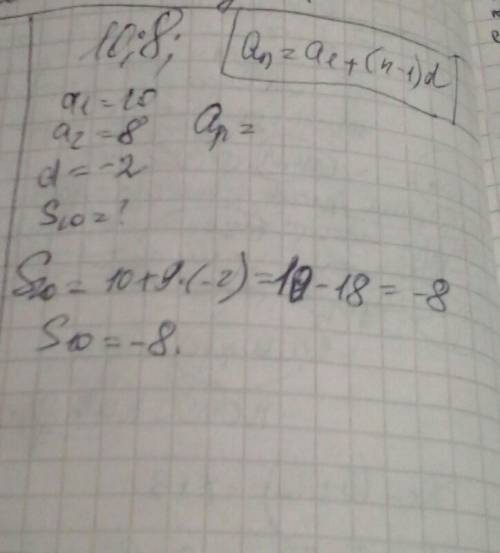 10; 8;
aₙ = a₁ + (n-1)d
a₁ = 10
a₂ = 8 aₙ =
d = -2
S₁₀ = ?
S₁₀ = 10 + 9 · (-2) = 10 - 18 = -8
S₁₀ = -8.